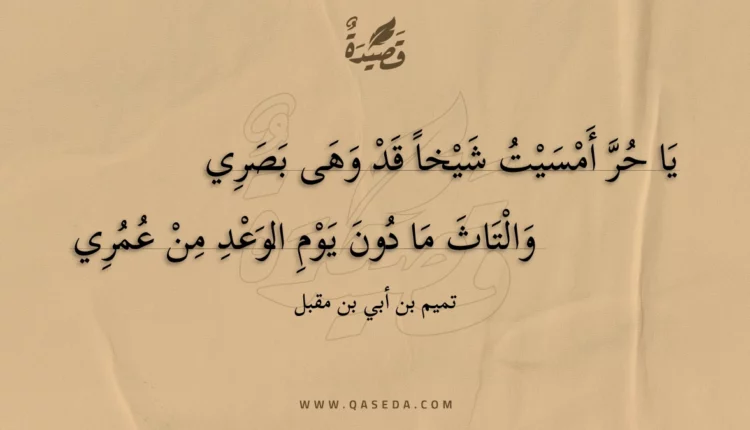 قَصِيدَةٌ
يَا حُرَّ أَمْسَيْتُ شَيْخاً قَدْ وَهَى بَصَرِي
وَالْتَاثَ مَا دُونَ يَوْمِ الوَعْدِ مِنْ عُمُرِي
تميم بن أبي بن مقبل
WWW.QASEDA.COM